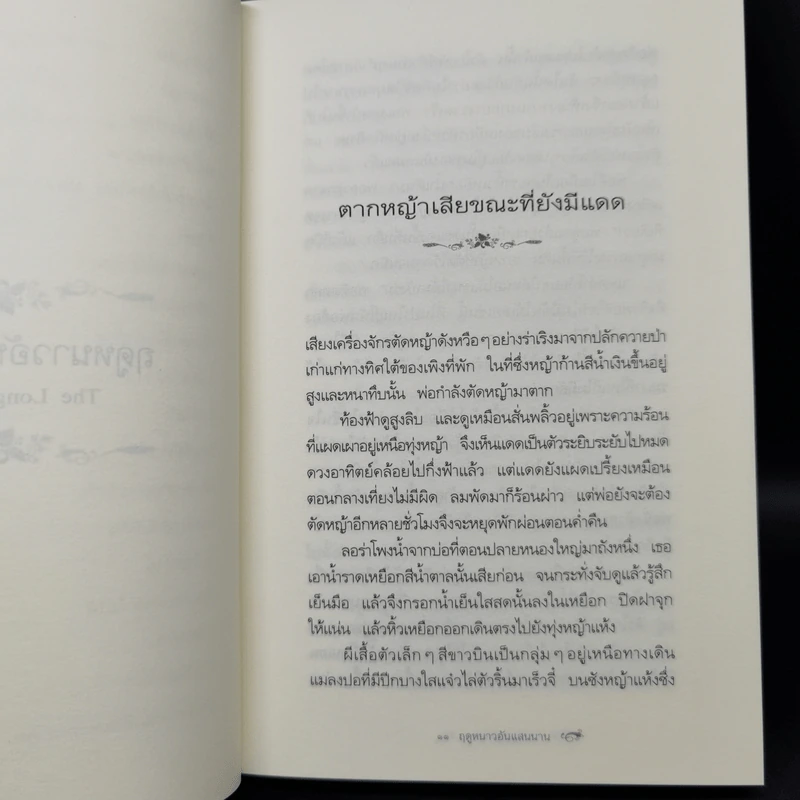 ตากหญ้าเสียขณะที่ยังมีแดด
เสียงเครื่องจักรตัดหญ้าดังหวือๆ อย่างร่าเริงมาจากปลักควายป่า
เก่าแก่ทางทิศใต้ของเพิงที่พัก ในที่ซึ่งหญ้าก้านสีน้ำเงินขึ้นอยู่
สูงและหนาทึบนั้น พ่อกำลังตัดหญ้ามาตาก
ท้องฟ้าดูสูงลิบ และดูเหมือนสั่นพลิ้วอยู่เพราะความร้อน
ที่แผดเผาอยู่เหนือทุ่งหญ้า จึงเห็นแดดเป็นตัวระยิบระยับไปหมด
ดวงอาทิตย์คล้อยไปกึ่งฟ้าแล้ว แต่แดดยังแผดเปรี้ยงเหมือน
ตอนกลางเที่ยงไม่มีผิด ลมพัดมาก็ร้อนผ่าว แต่พ่อยังจะต้อง
ตัดหญ้าอีกหลายชั่วโมงจึงจะหยุดพักผ่อนตอนค่ำคืน
ลอร่าโพงน้ำจากบ่อที่ตอนปลายหนองใหญ่มาถังหนึ่ง เธอ
เอาน้ำราดเหยือกสีน้ำตาลนั้นเสียก่อน จนกระทั่งจับดูแล้วรู้สึก
เย็นมือ แล้วจึงกรอกน้ำเย็นใสสดนั้นลงในเหยือก ปิดฝาจุก
ให้แน่น แล้วหิ้วเหยือกออกเดินตรงไปยังทุ่งหญ้าแห้ง
ผีเสื้อตัวเล็กๆ สีขาวบินเป็นกลุ่มๆ อยู่เหนือทางเดิน
แมลงปอที่มีปีกบางใสแจ๋วไล่ตัวริ้นมาเร็วจี๋ บนซังหญ้าแห้งซึ่ง
๑๑ ฤดูหนาวอันแสนนาน